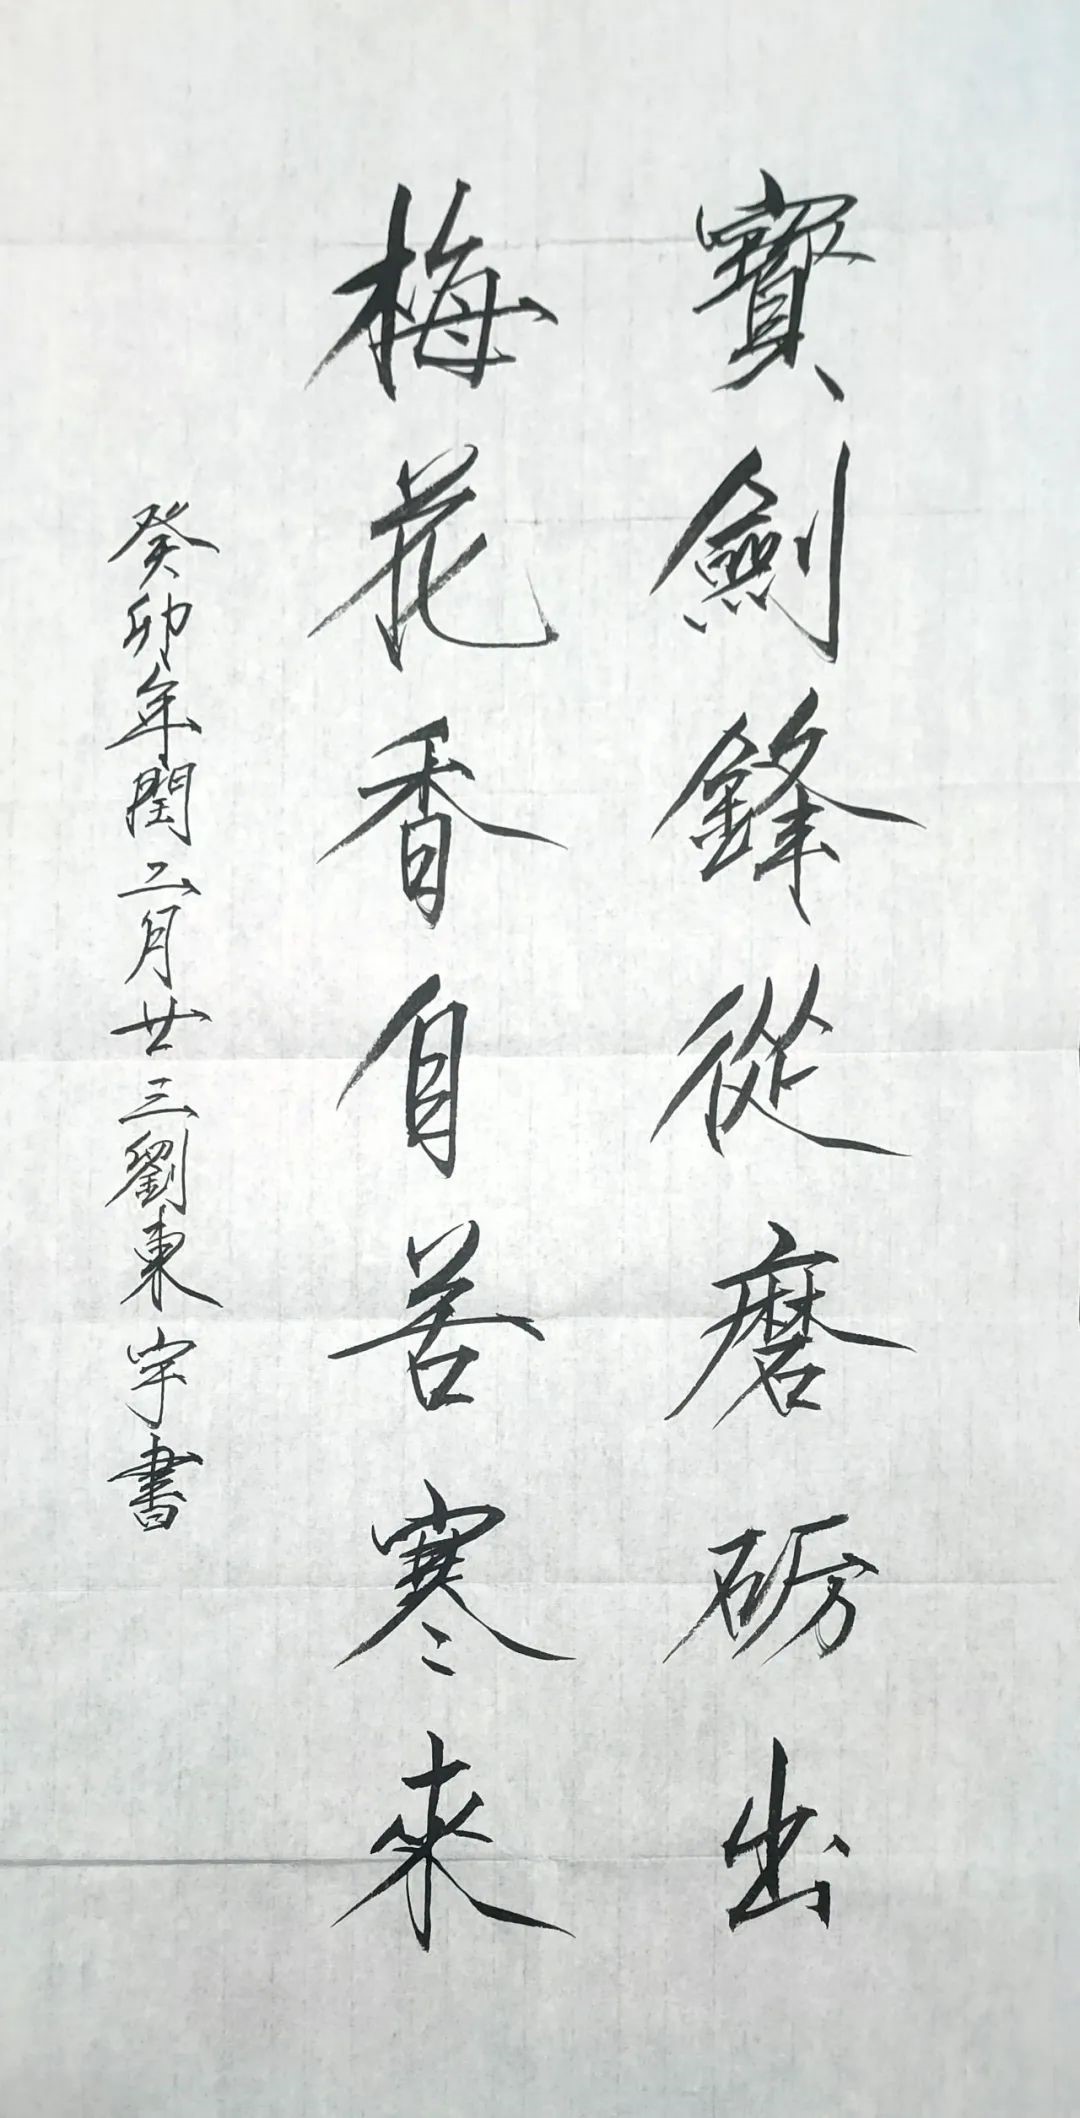 寳劍鋒從磨砺出
梅花香自苦寒來
癸卯年閏二月廿三劉東宇書